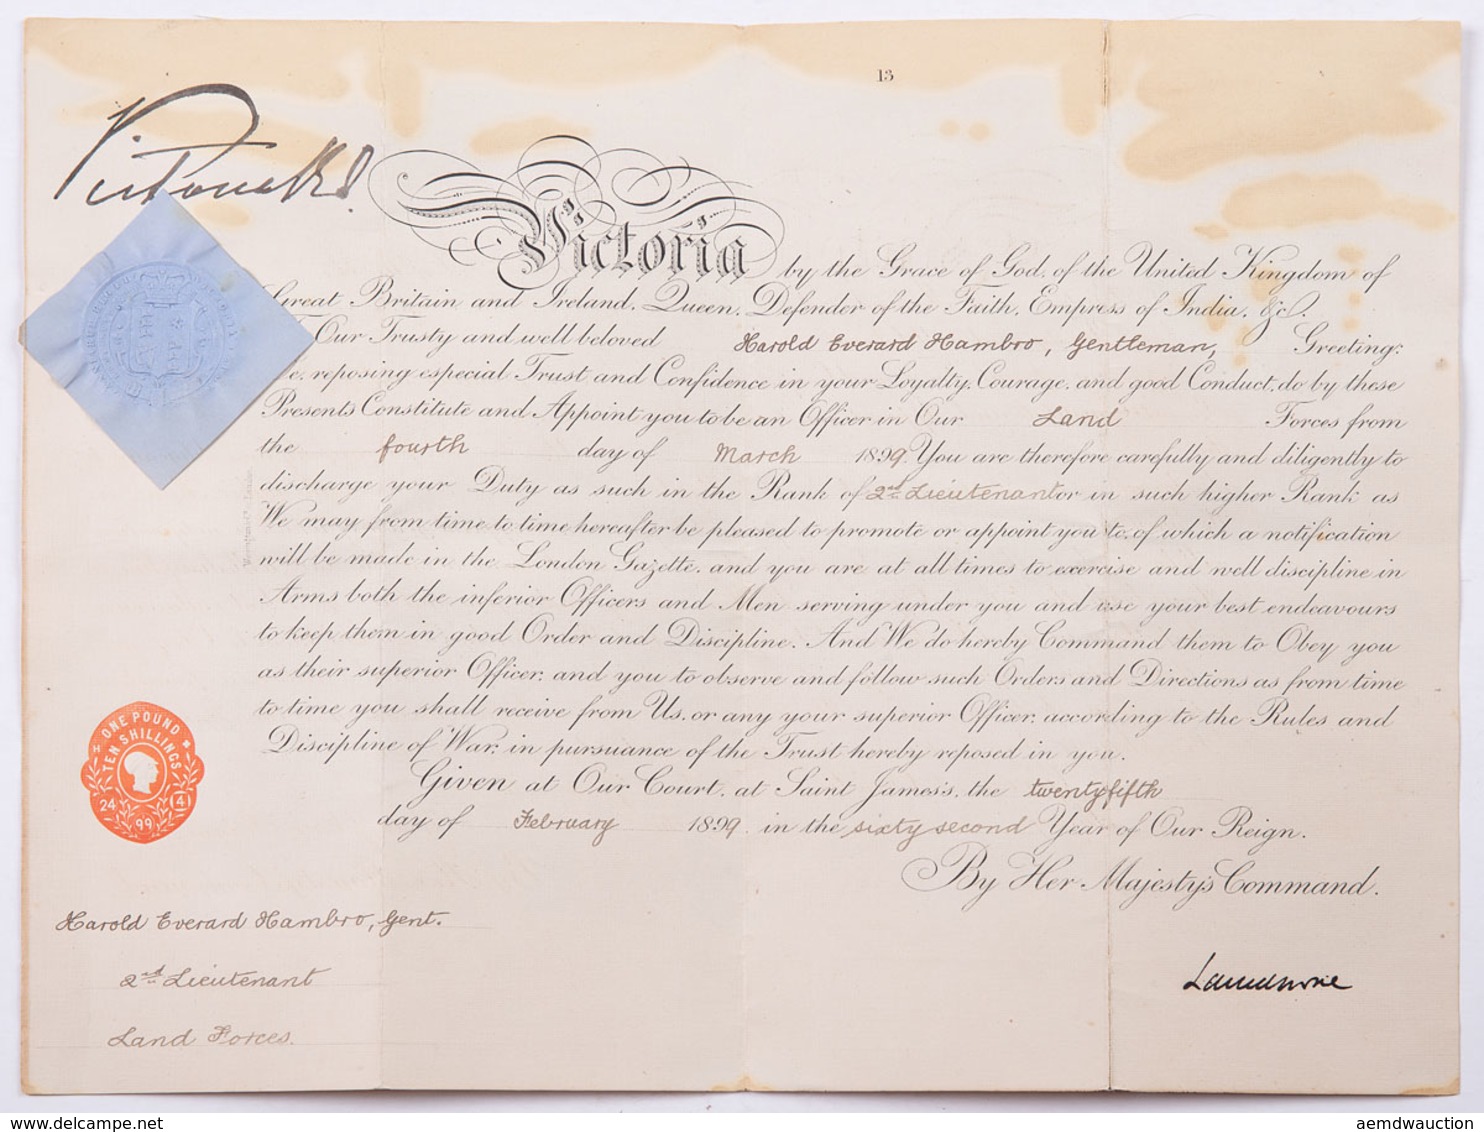 13
Victoria R I
Victoria by the Grace of God, of the United Kingdom of
Great Britain and Ireland, Queen, Defender of the Faith, Empress of India, &c.
Our Trusty and well beloved Harold Everard Hambro, Gentleman, Greeting:
We, reposing especial Trust and Confidence in your Loyalty, Courage, and good Conduct, do by these
Presents Constitute and Appoint you to be an Officer in Our Land Forces from
the fourth day of March 1899. You are therefore carefully and diligently to
discharge your Duty as such in the Rank of 2nd Lieutenant or in such higher Rank as
We may from time to time hereafter be pleased to promote or appoint you to, of which a notification
will be made in the London Gazette, and you are at all times to exercise and well discipline in
Arms both the inferior Officers and Men serving under you and use your best endeavours
to keep them in good Order and Discipline. And We do hereby Command them to Obey you
as their superior Officer, and you to observe and follow such Orders and Directions as from time
to time you shall receive from Us, or any your superior Officer, according to the Rules and
Discipline of War, in pursuance of the Trust hereby reposed in you.
Given at Our Court, at Saint James's, the twenty fifth
day of February 1899 in the sixty second Year of Our Reign.
By Her Majesty's Command.
H ONE POUND
TEN SHILLINGS
24 4
99
Harold Everard Hambro, Gent.
2nd Lieutenant
Land Forces.
Lansdowne
www.delcampe.net
aemdwauction